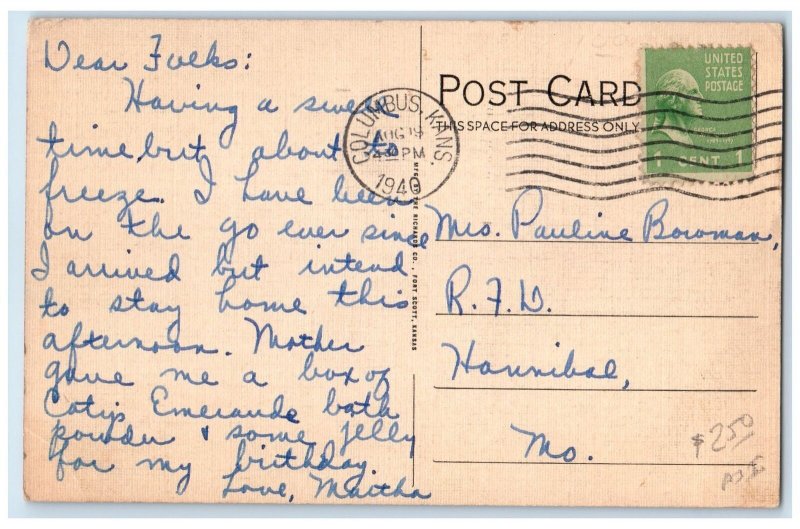 Dear Folks:
Having a swell
time, but about to
freeze. I have been
on the go ever since
I arrived but intend
to stay home this
afternoon. Mother
gave me a box of
Cotys Emeraude bath
powder & some jelly
for my birthday.
Love, Martha
POST CARD
THIS SPACE FOR ADDRESS ONLY
COLUMBUS, KANS.
AUG 19
4 PM
1940
UNITED
STATES
POSTAGE
1 CENT 1
MFG BY THE RICHARDS CO., FORT SCOTT, KANSAS
Mrs. Pauline Bowman,
R.F.D.
Hannibal,
Mo.
$2.50